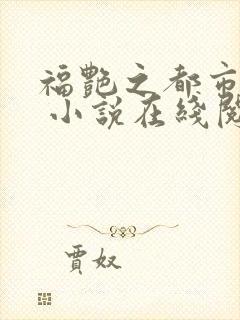 福艷之都市
小說在綫閱
賈奴